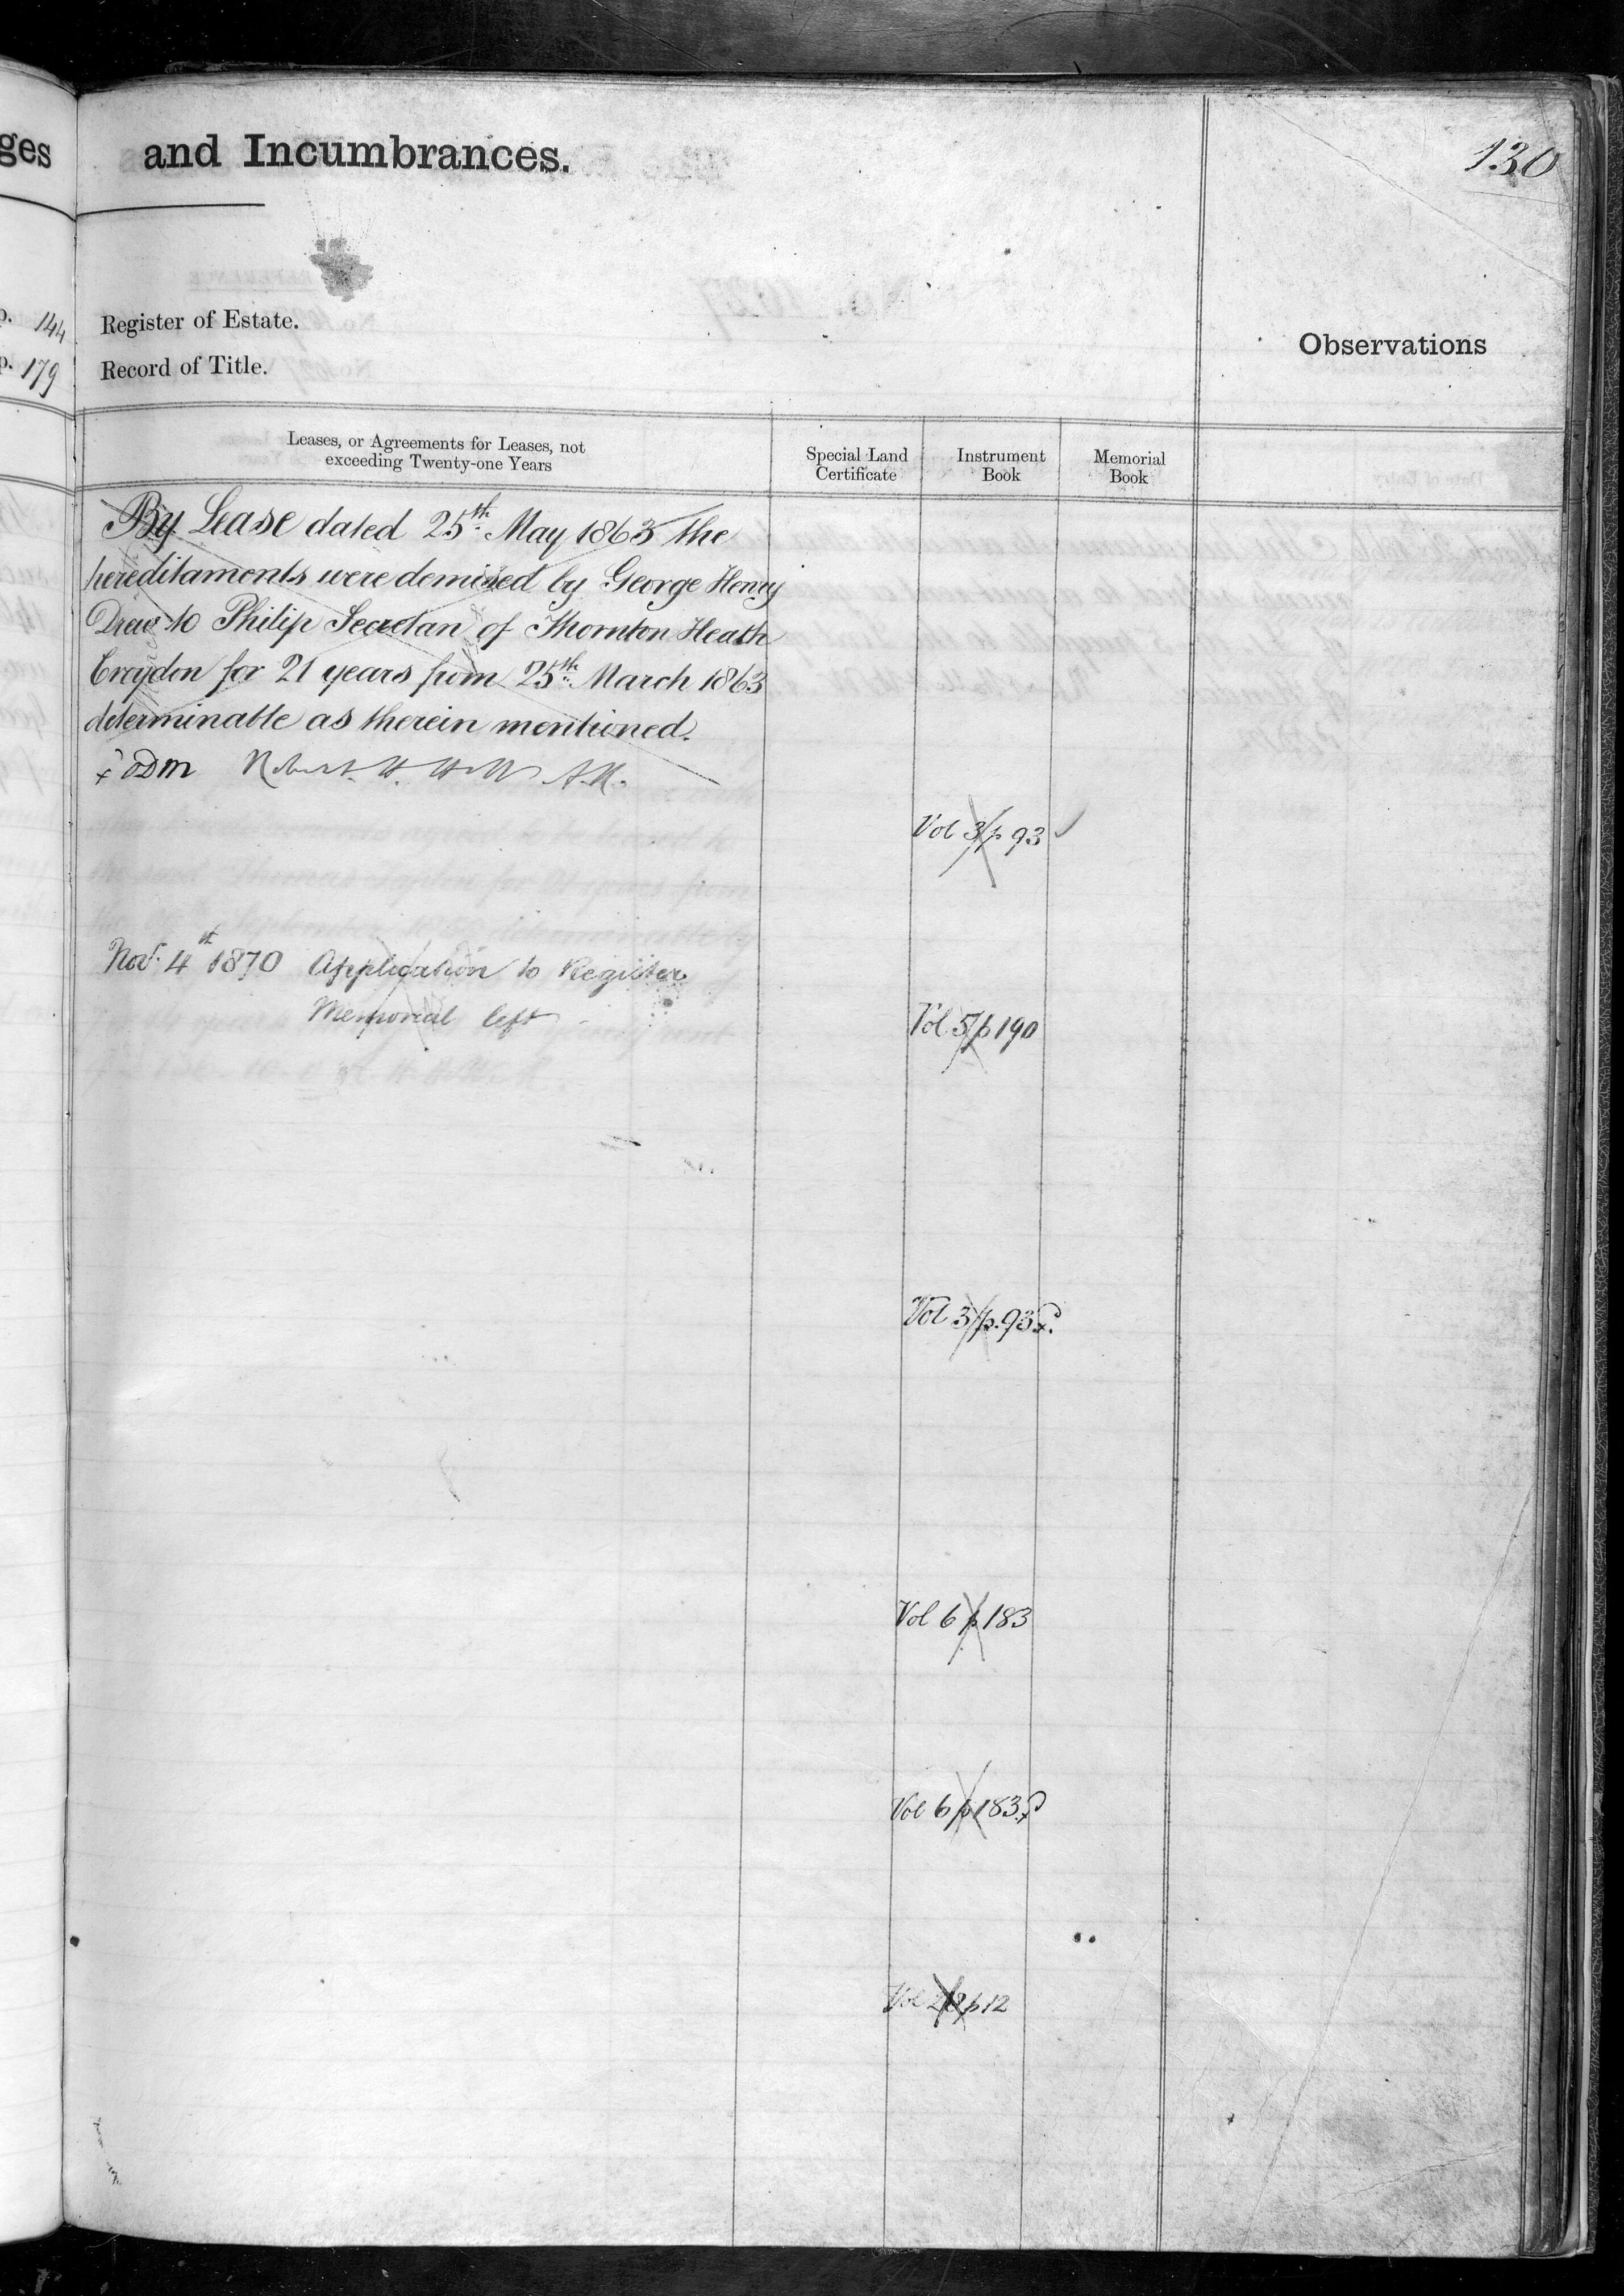 ges
and Incumbrances.
130
p. 144
Register of Estate.
p. 179
Record of Title.
Observations
Leases, or Agreements for Leases, not
exceeding Twenty-one Years
Special Land
Certificate
Instrument
Book
Memorial
Book
By Lease dated 25th May 1863 the
hereditaments were demised by George Henry
Drew to Philip Secretan of Thornton Heath
Croydon for 21 years from 25th March 1863
determinable as therein mentioned.
Robert H. Holt A.R.
Vol 3 p 93
Novr 4th 1870 Application to Register
Memorial left
Vol 5 p 190
Vol 3 p. 93
Vol 6 p 183
Vol 6 p 183
p 12